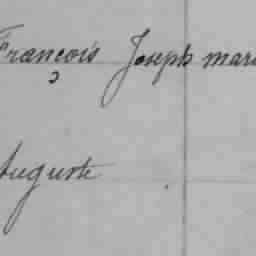 François Joseph mari
Auguste